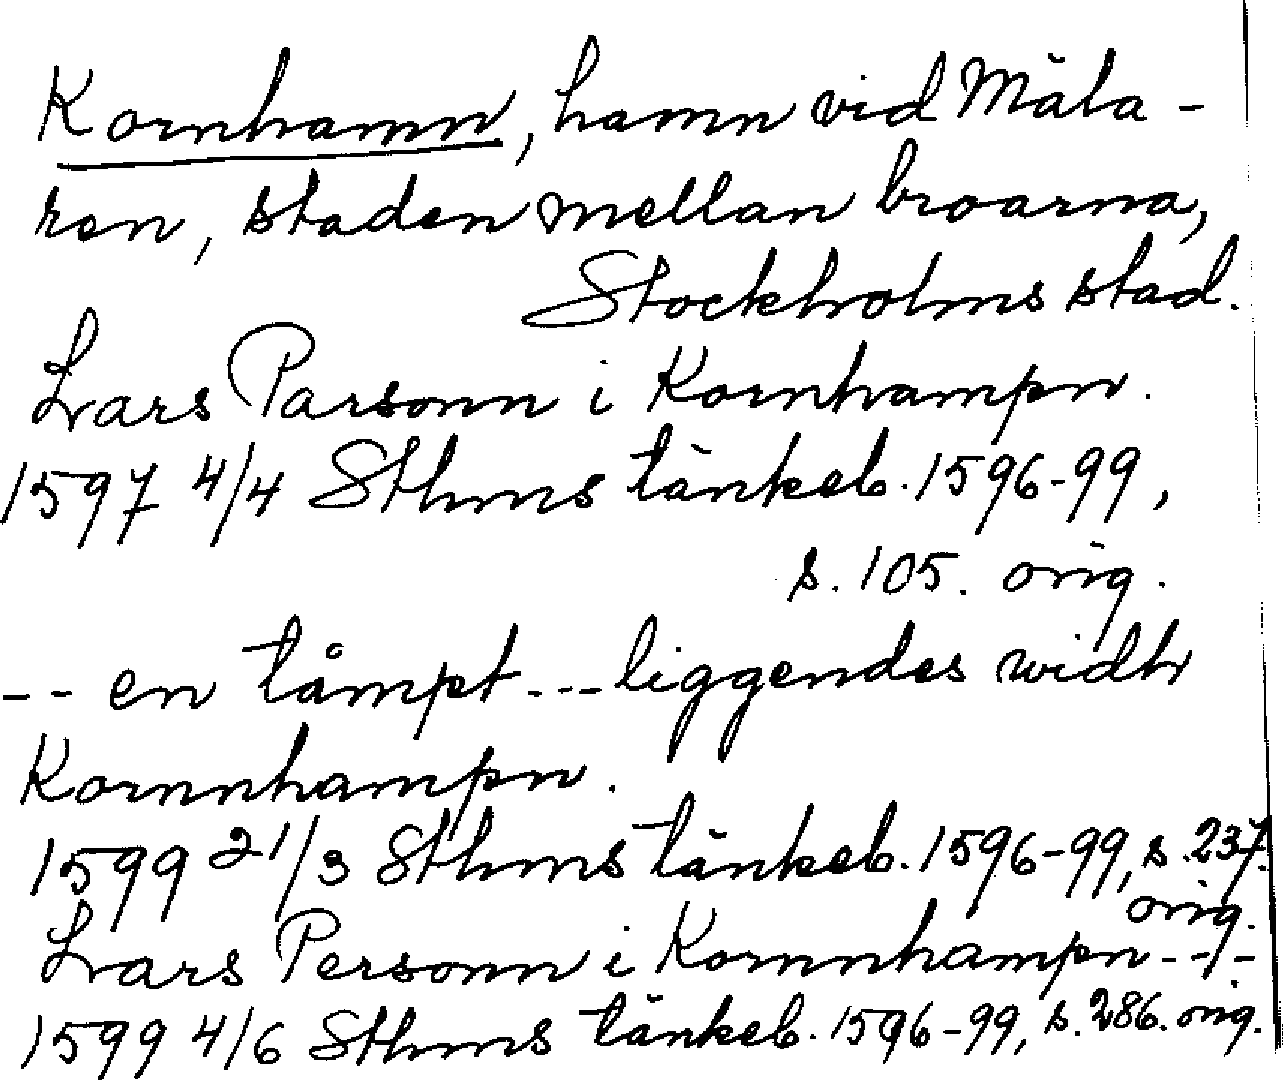 Kornhamn, hamn vid Mäla-
ren, staden mellan broarna,
Stockholms stad.
Lars Parsonn i Kornhampn.
1597 4/4 Sthms tänkeb. 1596-99,
s. 105. orig.
-- en tåmpt --- liggendes widh
Kornnhampn.
1599 21/3 Sthms tänkeb. 1596-99, s. 237.
orig.
Lars Personn i Kornnhampn ---
1599 4/6 Sthms tänkeb. 1596-99, s. 286. orig.